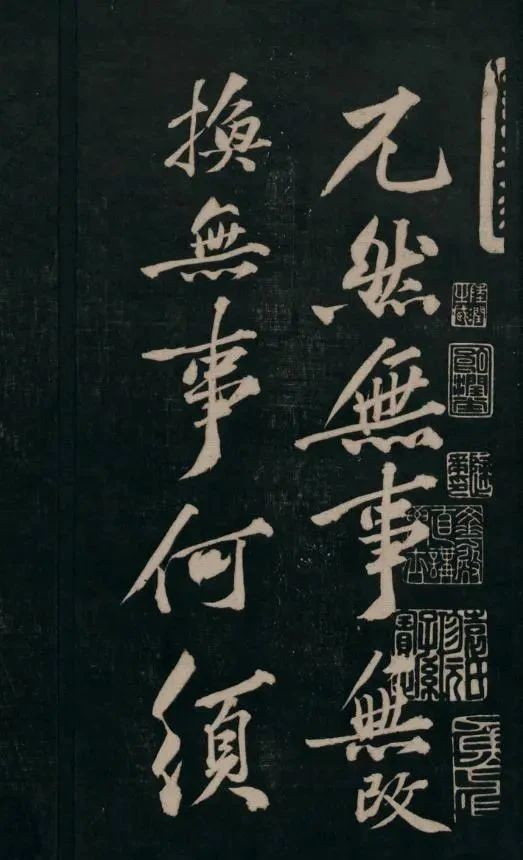 兀然無事無改
換無事何須